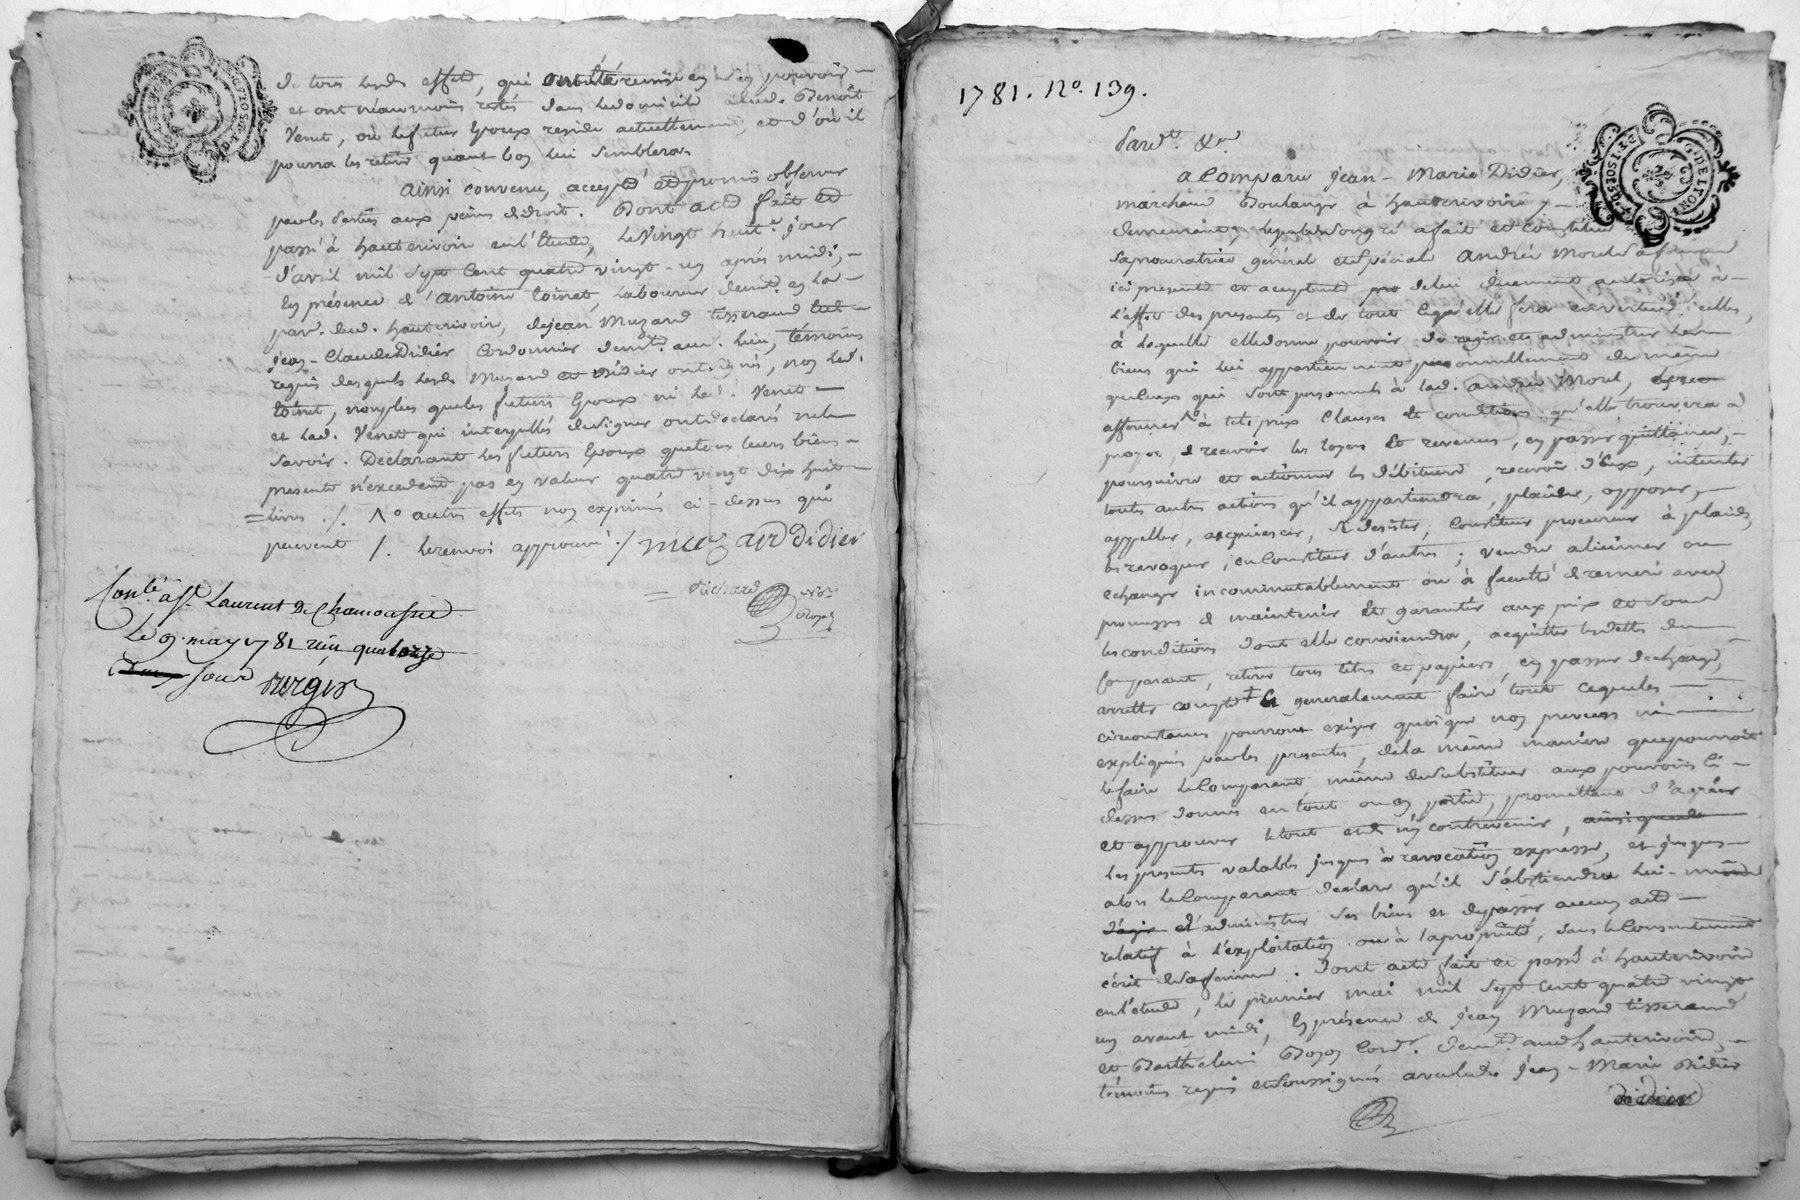 de tous lesd. effets, qui ont été remis en son pouvoir
et ont néanmoins restés dans le domicile dud. Benoît
Venet, où les futurs Epoux reside actuellement, et d'où il
pourra les retirer quant bon lui semblera.
Ainsi convenu, accepté et promis observer
par les parties aux peines de droit. Dont acte fait et
passé à hauterivoire en l'étude, le vingt huit.e jour
d'avril mil sept cent quatre vingt-un après midi,
En présence d'antoine Coinet, Laboureur demt. en la
par. dud. hauterivoire, de jean Muzard tisserand et
jean-Claude Didier Cordonnier demt. aud. lieu, témoins
requis desquels lesd. Muzard et Didier ont signés, non led.
Coinet, non plus que les futurs Epoux ni led. Venet
et lad. Venet qui interpellés de signer ont déclaré ne le
savoir. Declarant les futurs Epoux que tous leurs biens
presents n'excedent pas en valeur quatre vingt dix huit
= livres ./. 1º autres effets non exprimés ci-dessus qui
peuvent /. le renvoi approuvé ./ muzard didier
= Richard no.re Royal
Conlé. à St. Laurent De Chamousset
le 9. may 1781 reçu quatorze
sous
1781. No. 139.
Pard.t &.r
a Comparu jean-Marie Didier,
marchand Boulanger à hauterivoire y
demeurant, lequel de son gré a fait et constitué
sa procuratrice général et spéciale Andrée Morel sa femme
ici presente et acceptante de lui duement autorisée à
l'effet des presentes et de tout ce qu'elle fera en vertu d'icelles,
à laquelle elle donne pouvoir de regir et administrer les
biens qui lui appartiennent personnellement de même
que ceux qui sont personnels à lad. andrée Morel,
affermer à tels prix Clauses et conditions qu'elle trouvera à
propos, de recevoir les loyers et revenus, en passer quittance,
poursuivre et actionner les débiteurs, recevoir d'eux, intenter
toutes autres actions qu'il appartiendra, plaider, opposer,
appeller, acquiescer, se desister, Constituer procureur à plaids,
les revoquer, en Constituer d'autres ; vendre aliéner ou
echanger incommutablement ou à faculté de remeré avec
promesses de maintenir et garantir aux prix et sous
les conditions dont elle conviendra, acquitter les dettes du
Comparant, retirer tous titres et papiers, en passer decharge,
arretter compte & generalement faire tout ce que les
circonstances pourront exiger quoique non prevues ni
expliquées par les presentes, de la même maniere que pourroit
le faire le Comparant même de substituer aux pouvoirs ci-
dessus donnés en tout ou en partie, promettant d'agréer
et approuver le tout et de n'y contrevenir,
les presentes valables jusques à revocation expresse, et jusques
alors le Comparant declare qu'il s'abstiendra lui-même
d'administrer ses biens et de passer aucun acte
relatif à l'exploitation ou à la proprieté, sans le Consentement
écrit de sa femme. Dont acte fait et passé à hauterivoire
en l'étude, le premier mai mil sept cent quatre vingt
un avant midi, En présence de jean Muzard tisserand
et Barthelemi Cord.r demt. aud. hauterivoire,
témoins requis et soussignés avec led. jean-Marie Didier
didier